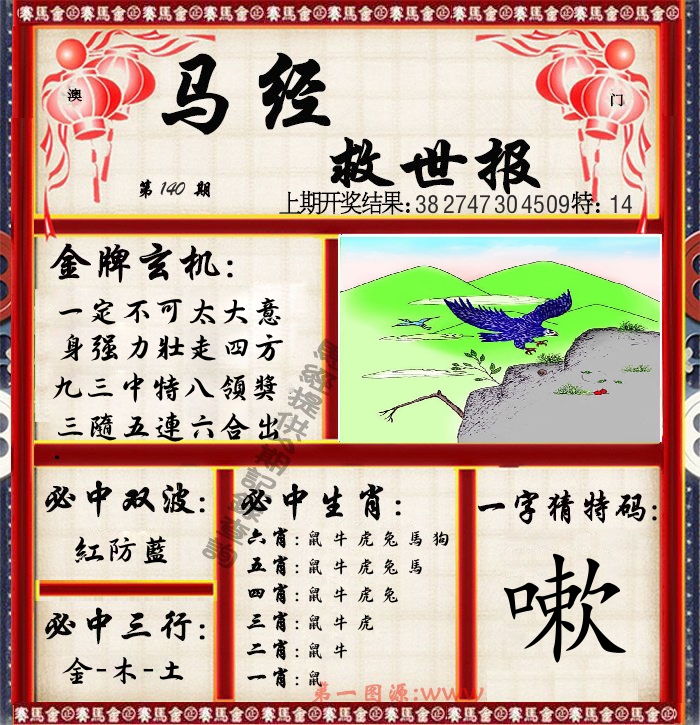 正賽馬會正賽馬會正賽馬會正賽馬會正賽馬會正賽馬會
澳
门
马经
救世报
第140期
上期开奖结果:38 27 47 30 45 09 特: 14
金牌玄机:
一定不可太大意
身强力壯走四方
九三中特八領獎
三隨五連六合出
必中双波:
紅防藍
必中三行:
金-木-土
必中生肖:
六肖:鼠牛虎兔馬狗
五肖:鼠牛虎兔馬
四肖:鼠牛虎兔
三肖:鼠牛虎
二肖:鼠牛
一肖:鼠
一字猜特码:
嗽
第一图源:www